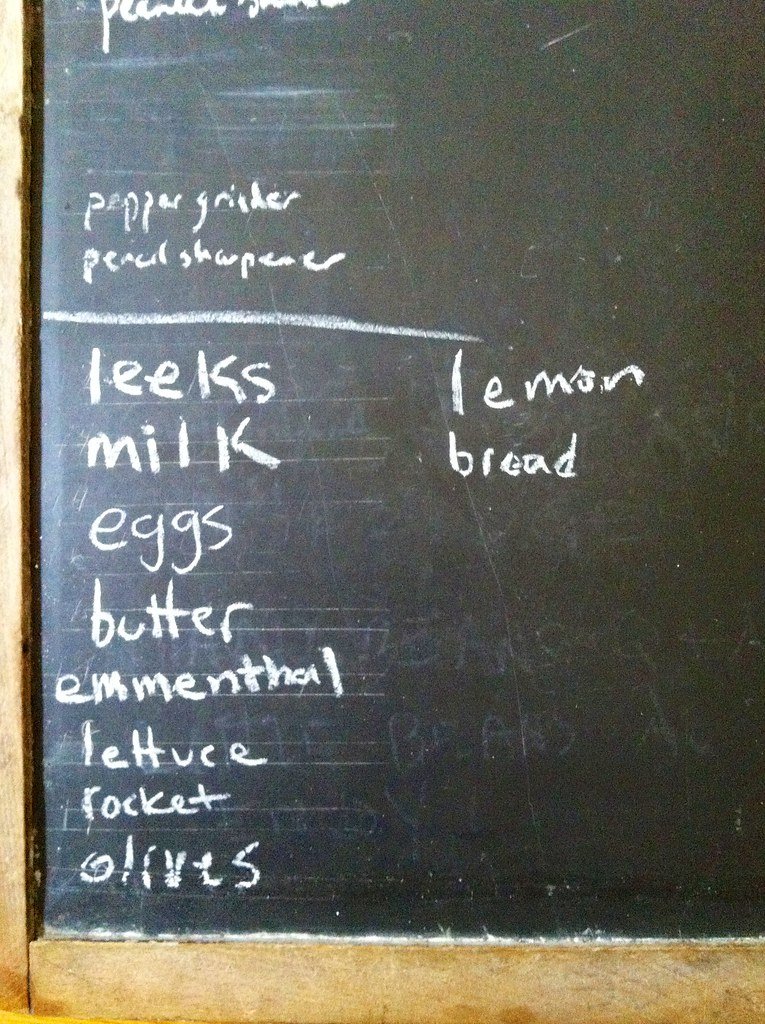 pepper grinder
pencil sharpener
leeks
milk
eggs
butter
emmenthal
lettuce
rocket
olives
lemon
bread